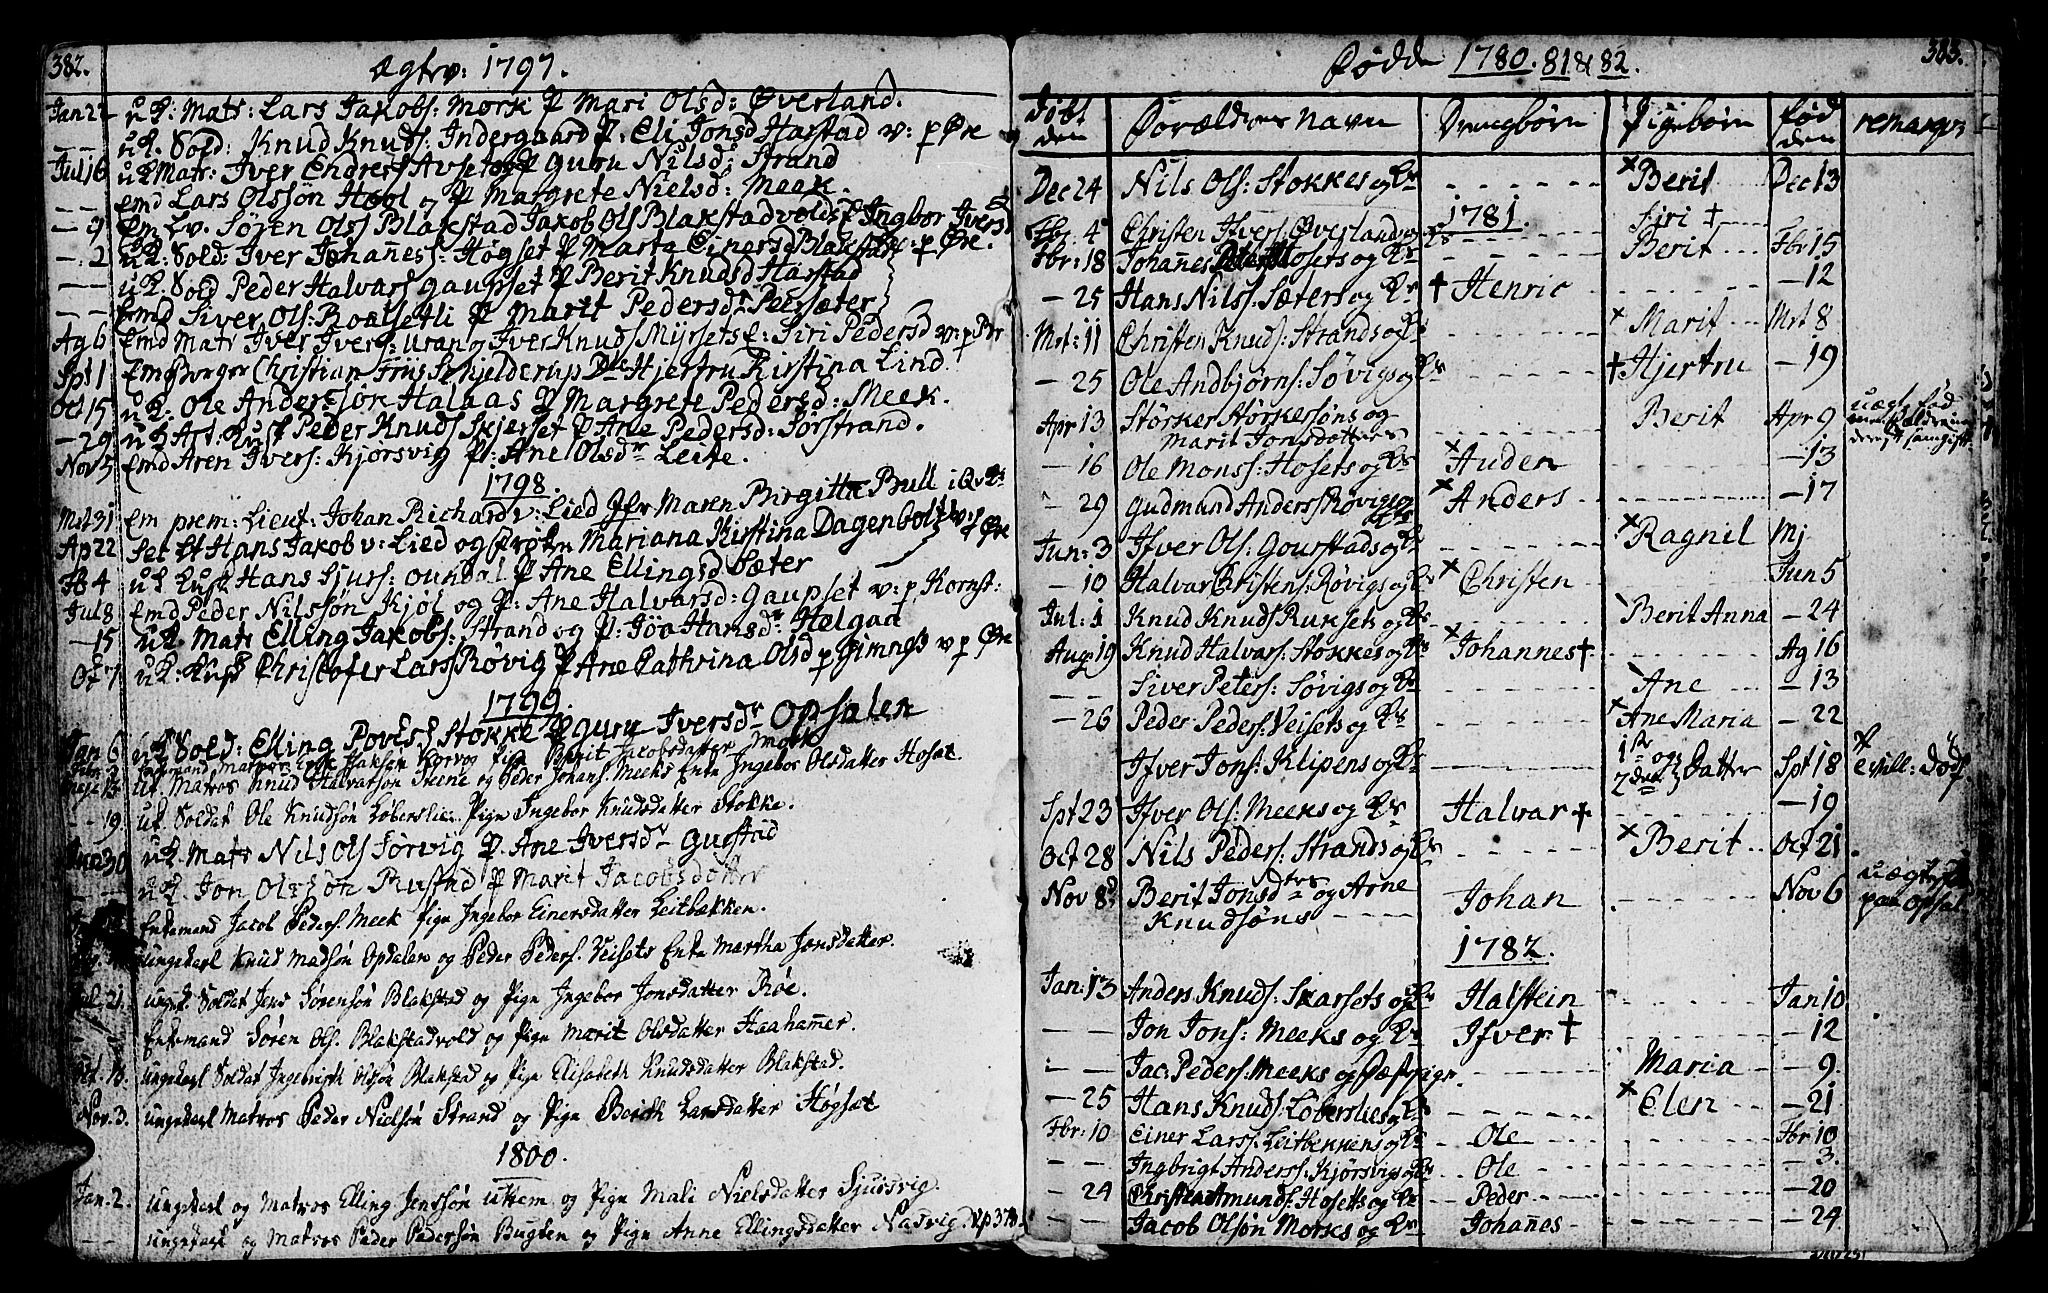 382.
Ægtev: 1797.
Jan 22 u K: Matr: Lars Jakobs: Mork P Mari Olsd: Øverland.
— — u K. Sold: Knud Knuds: Indergaard P. Eli Jonsd Harstad v: p Øre
Jul 16 u K Matr: Iver Endres Avset og P Guru Nilsd: Strand
— — Emd Lars Olssön Hool og P Margrete Nielsd: Meek.
— 9 Em Lv. Sören Olss Blakstad Jakob Ols Blakstadvold P Ingbor Iversd
— 2 u K: Sold: Iver Johañes: Högset P Marta Einersd Blakstad: p Øre.
— — u K. Sold Peder Halvars Gaupset P Berit Knudsd Harstad
— — Emd Siver Ols: Roalsetli P Marit Pedersdr Peersæter
Ag 6 Emd Matr Iver Ivers: uran og Iver Knuds Myrsets E: Siri Pedersd v: p Br
Spt 1 Em Borger Christian Friis Schjelderup Hjertru Kirstina Lind.
Oct 15 u K: Ole Anders: Halaas P Margrete Pedersd: Meek.
— 29 u K Art: Kusk Peder Knuds Skjerset P Ane Pedersd: Sörstrand.
Nov 5 Emd Aren Ivers: Kjorsvig P: Ane Olsdr Leite.
1798.
Mrt 31 Em prem: Lieut: Johan Richard v: Lied Jfr Maren Birgitta Bull i Qv
Ap 22 Sec Lt Hans Jakob v: Lied og Frök Mariana Kirstina Dagenbolt v: p Øre
Fb 4 u K Kusk Hans Sjurs: oundal P Ane Ellingsd Sæter
Jul 8 Emd Peder Nilssön Kjöl og P: Ane Halvarsd: Gaupset v: p Kornst:
— 15 u K Matr Elling Jakobs: Strand og P: Jöa Hansdr Helgaa
Oct 7 u K: Kusk Christofer Lars Rövig P Ane Cathrina Olsd p Gimnes v p Øre
1799.
Jan 6 u K Sold: Elling Povels Stokke P Guru Iversdr Opsalen
Enkemand Matros Erik Haksen Korvog Pige Berit Jacobsdatter Mork
13 u K. Matros Knud Halvarsön Steene og Peder Johans. Meeks Enke Ingebor Olsdatter Hoset.
— 19. u K. Soldat Ole Knudsön Loberslie Pige Ingebor Knudsdatter Stokke.
30 u K. Matr Nils Ols Sörvig P. Ane Iversdr Gustad
— u K. Jon Olssön Rustad P Marit Jacobsdotter
Enkemand Jacob Peders. Meek Pige Ingebor Einersdatter Leitbækken.
ungekarl Knud Madsön Opdalen og Peder Peders. Veisets Enke Martha Jonsdatter.
Jul. 21. ungk. Soldat Jens Sörensön Blakstad og Pige Ingebor Jonsdatter Röe.
— Enkemand Sören Ols. Blakstadvold og Pige Marit Olsdatter Haahamer.
Oct. 13. ungekarl Soldat Ingebrigth Olsön Blakstad og Pige Elisabeth Knudsdatter Blakstad.
Nov. 3. ungekarl Matros Peder Nielsön Strand og Pige Berith Larsdatter Högset
1800.
Jan. 2. ungekarl og Matros Elling Jensön Utkem og Pige Mali Nielsdatter Sjursvig.
— — ungekarl og Matros Peder Pedersön Bugten og Pige Anne Ellingsdatter Nasvig. vp 378.
Födde 1780. 81 & 82.
383.
Döbt den Forældrenes Navne Drengbörn Pigebörn Fød den remarqv
Dec 24 Nils Ols: Stokkes og Ks × Berit Dec 13
1781. Siri †
Fbr: 4 Christen Ifvers: Øverlands og Ks Berit Fbr 15
Fbr: 18 Johañes Hosets og Ks — 12
— 25 Hans Nilss: Sæters og Ks † Henric
Mrt: 11 Christen Knuds: Strands og Ks × Marit Mrt 8
— 25 Ole Andbjörns: Sövigs og Ks † Hjertru — 19
Apr 13 Störker Störkersöns og Marit Jonsdatters Berit Apr 9 uægt. fød
— 16 Ole Monss: Hosets og Ks × Auden — 13
— 29 Gudmund Anders Rövigs og Ks × Anders — 17
Jun: 3 Ifver Ols: Gourstads og Ks × Ragnil Mj
— 10 Halvar Christens: Rövigs og Ks × Christen Jun 5
Jul: 1 Knud Knuds Ruksets og Ks Berit Anna — 24
Aug 19 Knud Halvars: Stokkes og Ks × Johannes † Ag 16
Siver Peters: Sövigs og Ks Ane — 13
— 26 Peder Peders: Veisets og Ks × Ane Maria — 22
Ifver Jons: Klipens og Ks 1ste og 2den Datter Spt 18 tvill: döds
Spt 23 Ifver Ols: Meeks og Ks Halvar † — 19
Oct 28 Nils Peders: Strands og Ks × Berit Oct 21
Nov 8 Berit Jonsdtrs og Arne Knudsöns Johan Nov 6 uægte paa Opsal
1782.
Jan: 13 Anders Knuds: Skarsets og Ks Halstein Jan 10
— — Jon Jons: Meeks og Ks Ifver † — 12
— — Jac: Peders: Meeks og Maria — 9
— 25 Hans Knuds: Loberslies og Ks × Elen — 21
Fbr: 10 Einer Larss: Leitbekkens og Ks Ole Fbr 10
— — Ingbrigt Anderss: Kjörsvigs og Ks Ole — 3.
— 24 Christen Amunds: Hosetts og Ks Peder — 20
Jacob Olsön Morks og Ks Johañes — 24